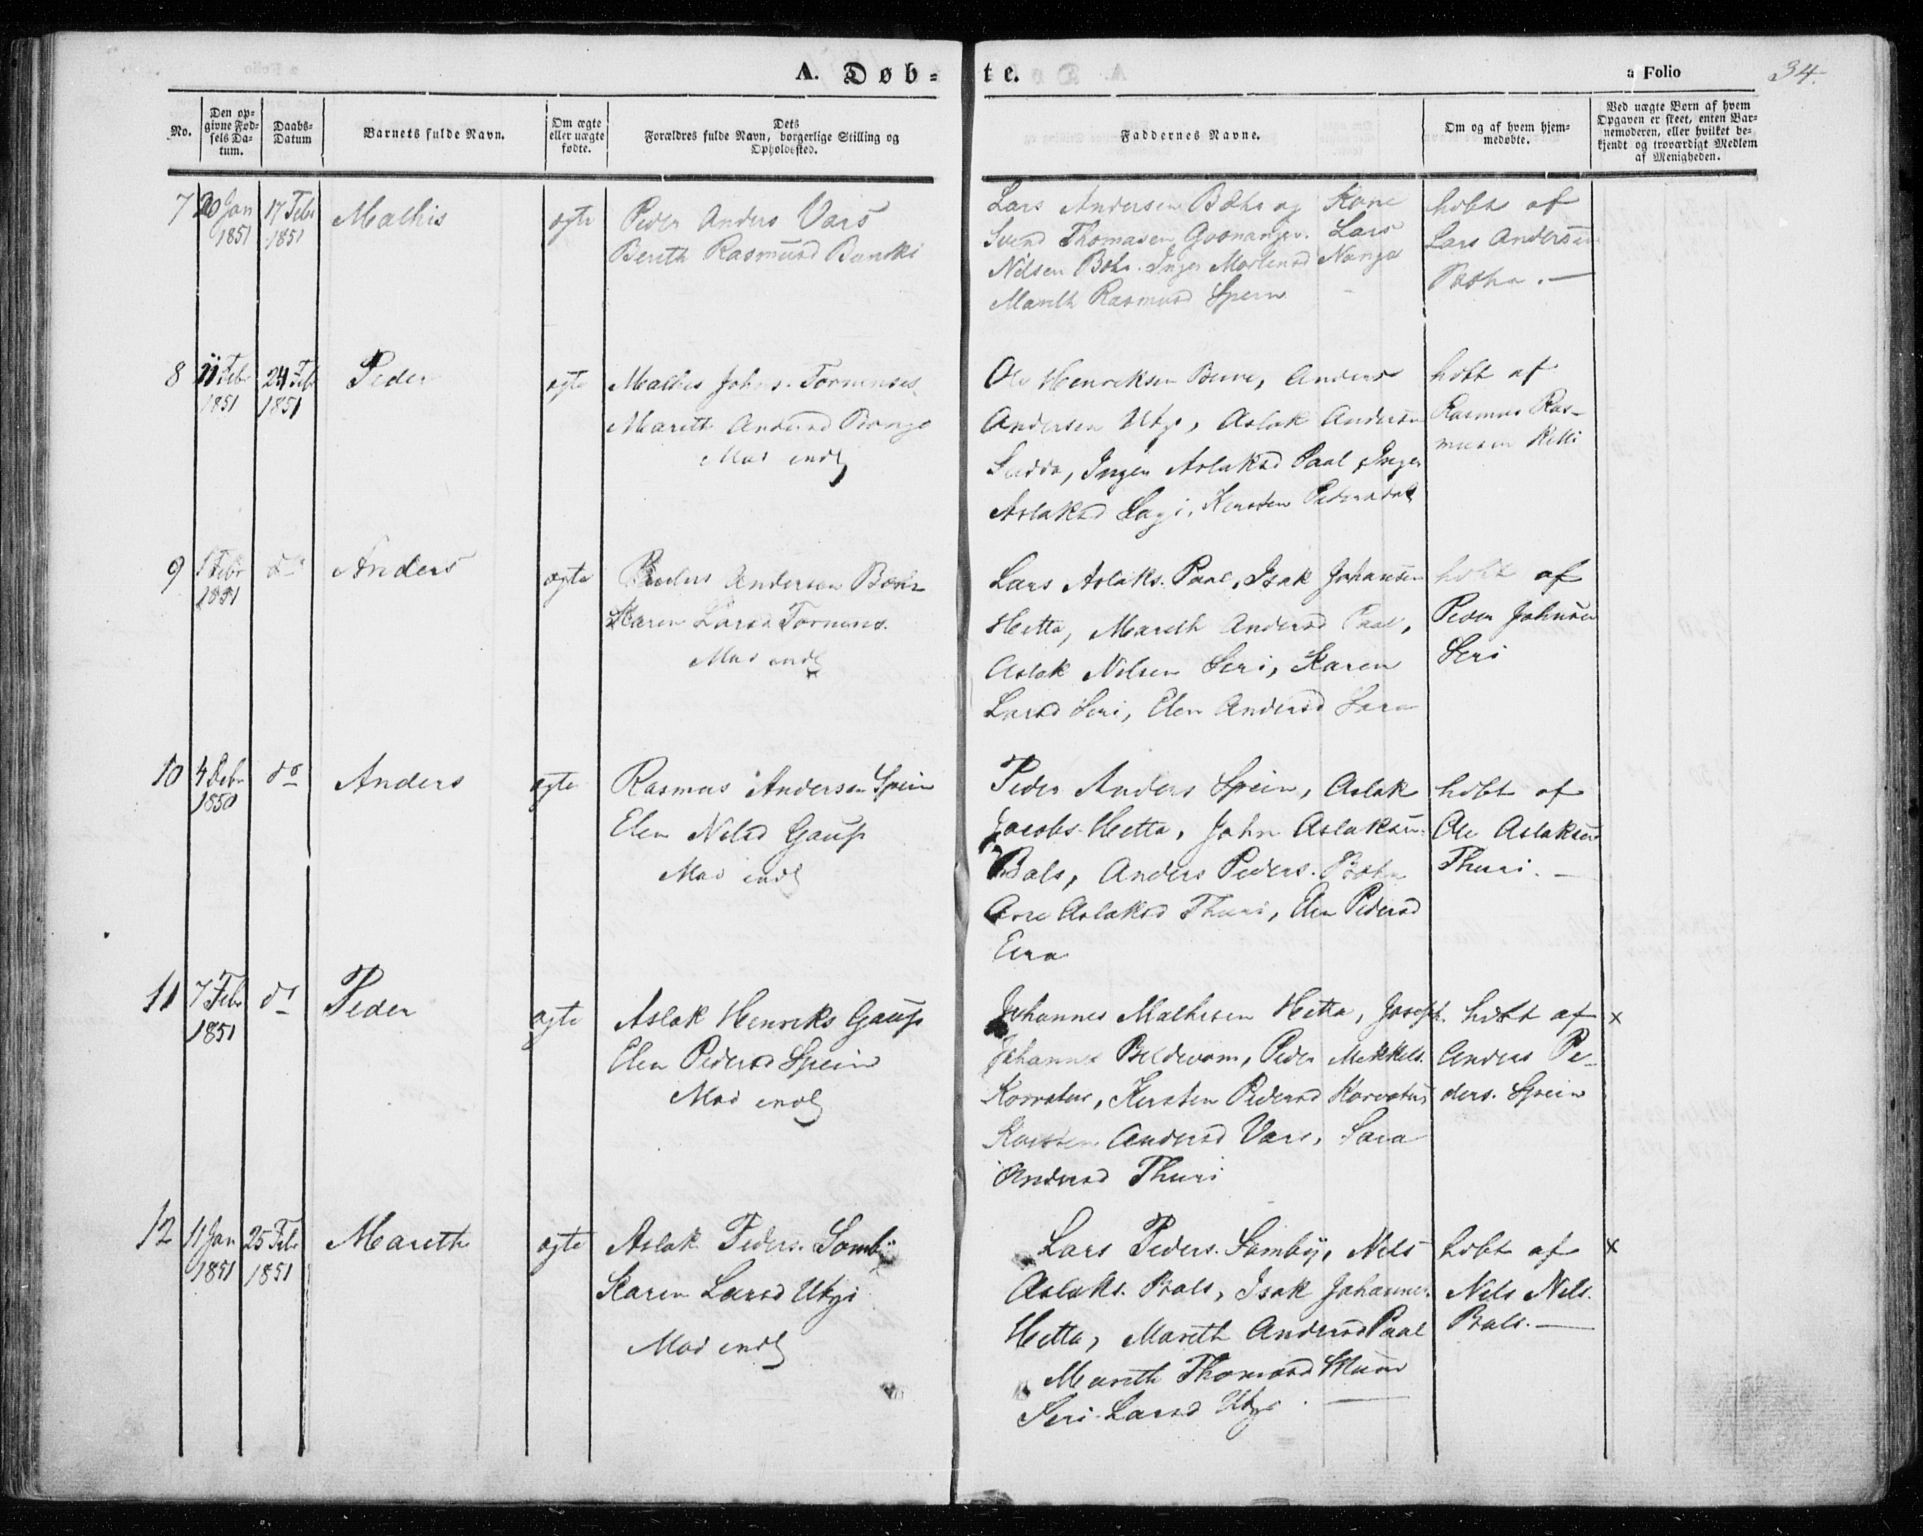 A. Døb-
te.
a Folio
34.
No.
Den op-
givne Fød-
sels Da-
tum.
Daabs-
Datum
Barnets fulde Navn.
Om ægte
eller uægte
fødte.
Dets
Forældres fulde Navn, borgerlige Stilling og
Opholdssted.
Faddernes Navne.
Om og af hvem hjem-
medøbte.
Ved uægte Børn af hvem
Opgaven er skeet, enten Bar-
nemoderen, eller hvilket be-
kjendt og troværdigt Medlem
af Menigheden.
7
20 Jan
1851
17 Febr
1851
Mathis
ægte
Peder Anders Vars
Berith Rasmusd
Lars Andersen Bæhr og Kone
Svend Thomasen Lars
Nilsen Bæhr. Inger Mortensd Nango
Marith Rasmusd Spein
hdbt af
Lars Andersen
Bæhr. —
8
11 Febr
1851
24 Febr
1851
Peder
ægte
Mathis Johns. Tornenses
Mareth Andersd Pongo
Mas indl
Ole Henriksen Anders
Andersen Utzi, Aslak Andersen
Sadda, Ingen Aslaksd Paal, Inger
Aslaksd Kersten Pedersdat
hdbt af
Rasmus Ras-
musen
9
1 Febr
1851
do
Anders
ægte
Andersen Bæhr
Karen Larsd Tornenses.
Mas indl
Lars Aslaks. Paal, Isak Johansen
Hetta, Mareth Andersd Paal,
Aslak Nilsen Seri, Karen
Larsd Seri, Elen Andersd Sara
hdbt af
Peder Johnsen
Seri
10
4 Febr
1850
do
Anders
ægte
Rasmus Andersen Spein
Elen Nilsd Gaup
Mas indl
Peder Anders Spein, Aslak
Jacobs. Hetta, John Aslaksen.
Bals, Anders Peders. Bæhr
Aslaksd Thuri, Elen Pedersd
Eira
hdbt af
Ole Aslaksen
Thuri. —
11
7 Febr
1851
do
Peder
ægte
Aslak Henriks Gaup
Elen Pedersd Spein
Mas indl
Johannes Mathisen Hetta, Joseph
Johannes Peder Mikkels.
Korvatus, Kersten Pedersd Korvatus
Kersten Andersd Vars, Sara
Andersd Thuri
hdbt af
Anders Pe-
ders. Spein
x
12
11 Jan
1851
25 Febr
1851
Mareth
ægte
Aslak Peders. Somby
Karen Larsd Utzi
Mas indl
Lars Peders. Somby, Nils
Aslaks. Bals, Isak Johannes.
Hetta, Mareth Andersd Paal
Mareth Thomasd
Seri Larsd Utzi. —
hdbt af
Nils Nils.
Bals. —
x